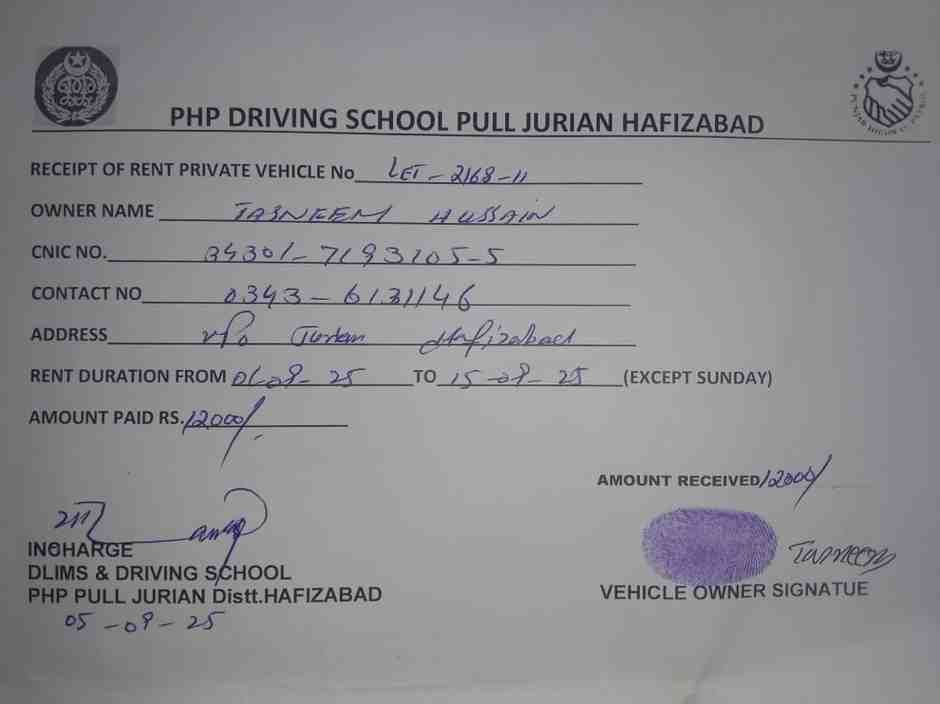 PHP DRIVING SCHOOL PULL JURIAN HAFIZABAD
RECEIPT OF RENT PRIVATE VEHICLE No LET-2168-11
OWNER NAME TASNEEM HUSSAIN
CNIC NO. 34301-7193105-5
CONTACT NO 0343-6131146
ADDRESS v/Po Jurian Hafizabad
RENT DURATION FROM 01-09-25 TO 15-09-25 (EXCEPT SUNDAY)
AMOUNT PAID RS. 12000/
AMOUNT RECEIVED 12000/
INCHARGE
DLIMS & DRIVING SCHOOL
PHP PULL JURIAN Distt.HAFIZABAD
05-09-25
Tasneem
VEHICLE OWNER SIGNATUE